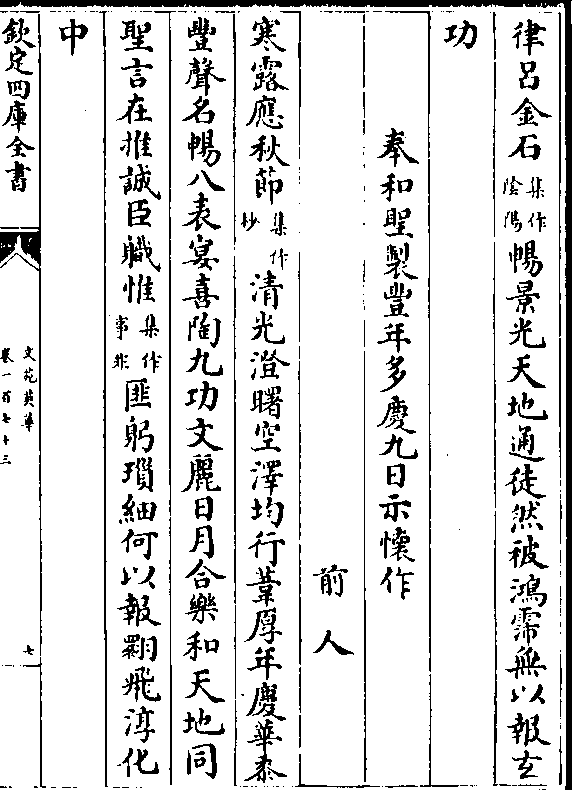 律呂金石集作陰陽暢景光天地通徒然被鴻霈無以報玄
功
奉和聖製豐年多慶九日示懷作
前人
寒露應秋節集作杪清光澄曙空澤均行葦厚年慶華黍
豐聲名暢八表宴喜陶九功文麗日月合樂和天地同
聖言在推誠臣職惟集作事非匪躬瑣細何以報翾飛淳化
中
欽定四庫全書
文苑英華
卷一百七十三
七